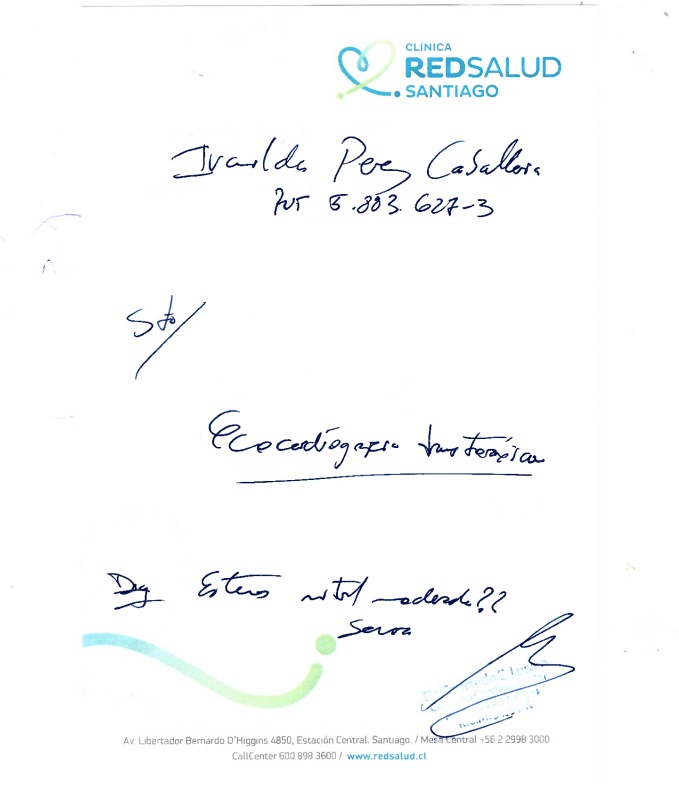 CLÍNICA
REDSALUD
SANTIAGO
Perez Caballero
RUT 5.803.627-3
Sto/
Ecocardiografia transtorácica
Dg Estenosis mitral moderada??
Severa
Av. Libertador Bernardo O'Higgins 4850, Estación Central, Santiago. / Mesa Central +56 2 2998 3000
CallCenter 600 898 3600 / www.redsalud.cl